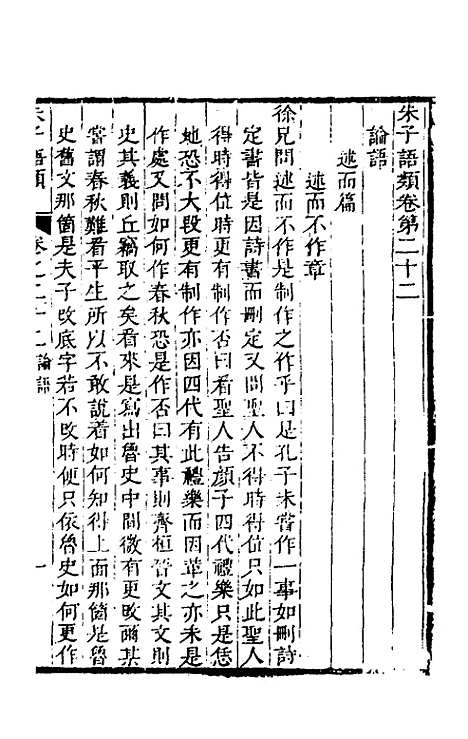 朱子語類卷第二十二
論語
述而篇
述而不作章
徐兄問述而不作是制作之作乎曰是孔子未嘗作一事如刪詩
定書皆是因詩書而刪定又問聖人不得時得位只如此聖人
得時得位時更有制作否曰看聖人告顏子四代禮樂只是恁
地恐不大段更有制作亦因四代有此禮樂而因革之亦未是
作處又問如何作春秋恐是作否曰其事則齊桓晉文其文則
史其義則丘竊取之矣看來是寫出魯史中間微有更改爾某
嘗謂春秋難看平生所以不敢說着如何知得上面那箇是魯
史舊文那箇是夫子改底字若不改時便只依魯史如何更作
朱子語類 卷之二十二論語 一